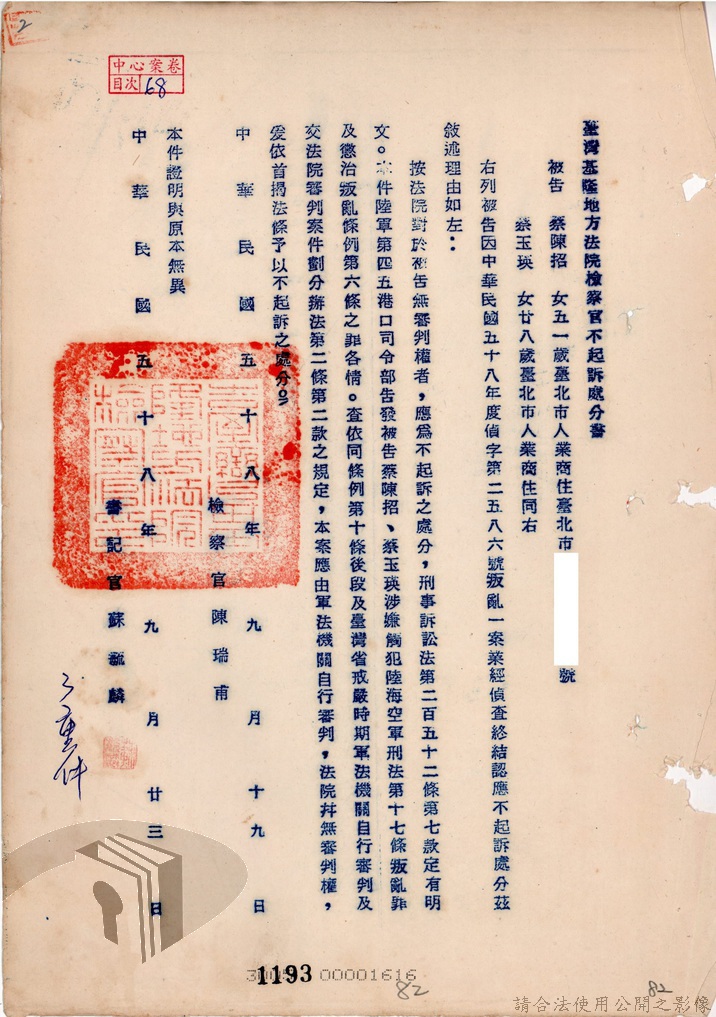 2
中心案卷
目次 68
臺灣基隆地方法院檢察官不起訴處分書
被告 蔡陳招 女五一歲臺北市人業商住臺北市 號
蔡玉瑛 女廿八歲臺北市人業商住同右
右列被告因中華民國五十八年度偵字第二五八六號叛亂一案業經偵查終結認應不起訴處分茲
敘述理由如左：
按法院對於被告無審判權者，應為不起訴之處分，刑事訴訟法第二百五十二條第七款定有明
文。本件陸軍第四五港口司令部告發被告蔡陳招、蔡玉瑛涉嫌觸犯陸海空軍刑法第十七條叛亂罪
及懲治叛亂條例第六條之罪各情。查依同條例第十條後段及臺灣省戒嚴時期軍法機關自行審判及
交法院審判案件劃分辦法第二條第二款之規定，本案應由軍法機關自行審判，法院并無審判權，
爰依首揭法條予以不起訴之處分。
中華民國五十八年九月十九日
檢察官陳瑞甫
本件證明與原本無異
中華民國五十八年九月廿三日
書記官蘇 麟
1193
00001616
82
82
請合法使用公開之影像